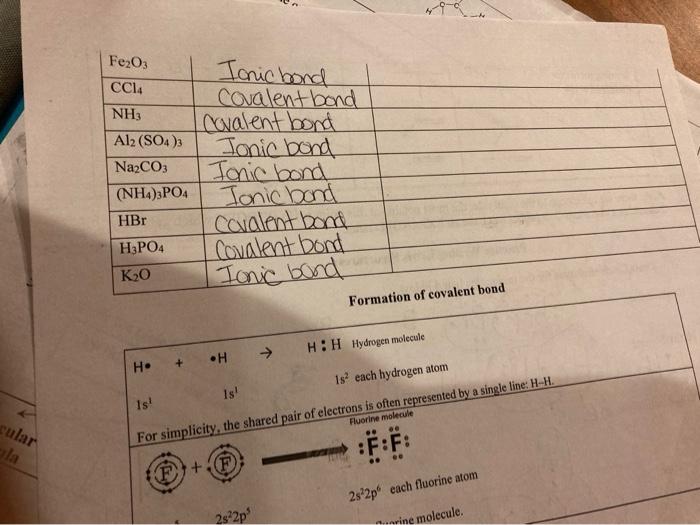 Fe₂O₃ Ionic bond
CCl₄ Covalent bond
NH₃ Covalent bond
Al₂ (SO₄ )₃ Ionic bond
Na₂CO₃ Ionic bond
(NH₄)₃PO₄ Ionic bond
HBr Covalent bond
H₃PO₄ Covalent bond
K₂O Ionic bond
Formation of covalent bond
H• + •H → H:H Hydrogen molecule
1s¹ 1s¹ 1s² each hydrogen atom
For simplicity, the shared pair of electrons is often represented by a single line: H-H.
Fluorine molecule
F + F :F:F:
2s²2p⁵ 2s²2p⁶ each fluorine atom
molecule.